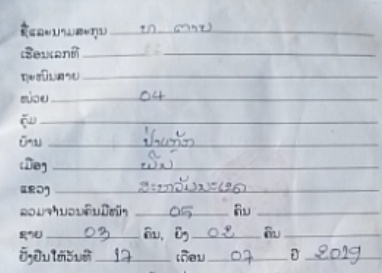 ຊື່ແລະນາມສະກຸນ ທ. ຕາບ
ເຮືອນເລກທີ
ຖະໜົນສາຍ
ໜ່ວຍ 04
ຄຸ້ມ
ບ້ານ
ເມືອງ ພິນ
ແຂວງ ສະຫວັນນະເຂດ
ລວມຈຳນວນຄົນມີໜ້າ 05 ຄົນ
ຊາຍ 03 ຄົນ, ຍິງ 02 ຄົນ
ຍັ້ງຢືນໃຫ້ວັນທີ 17 ເດືອນ 07 ປີ 2019